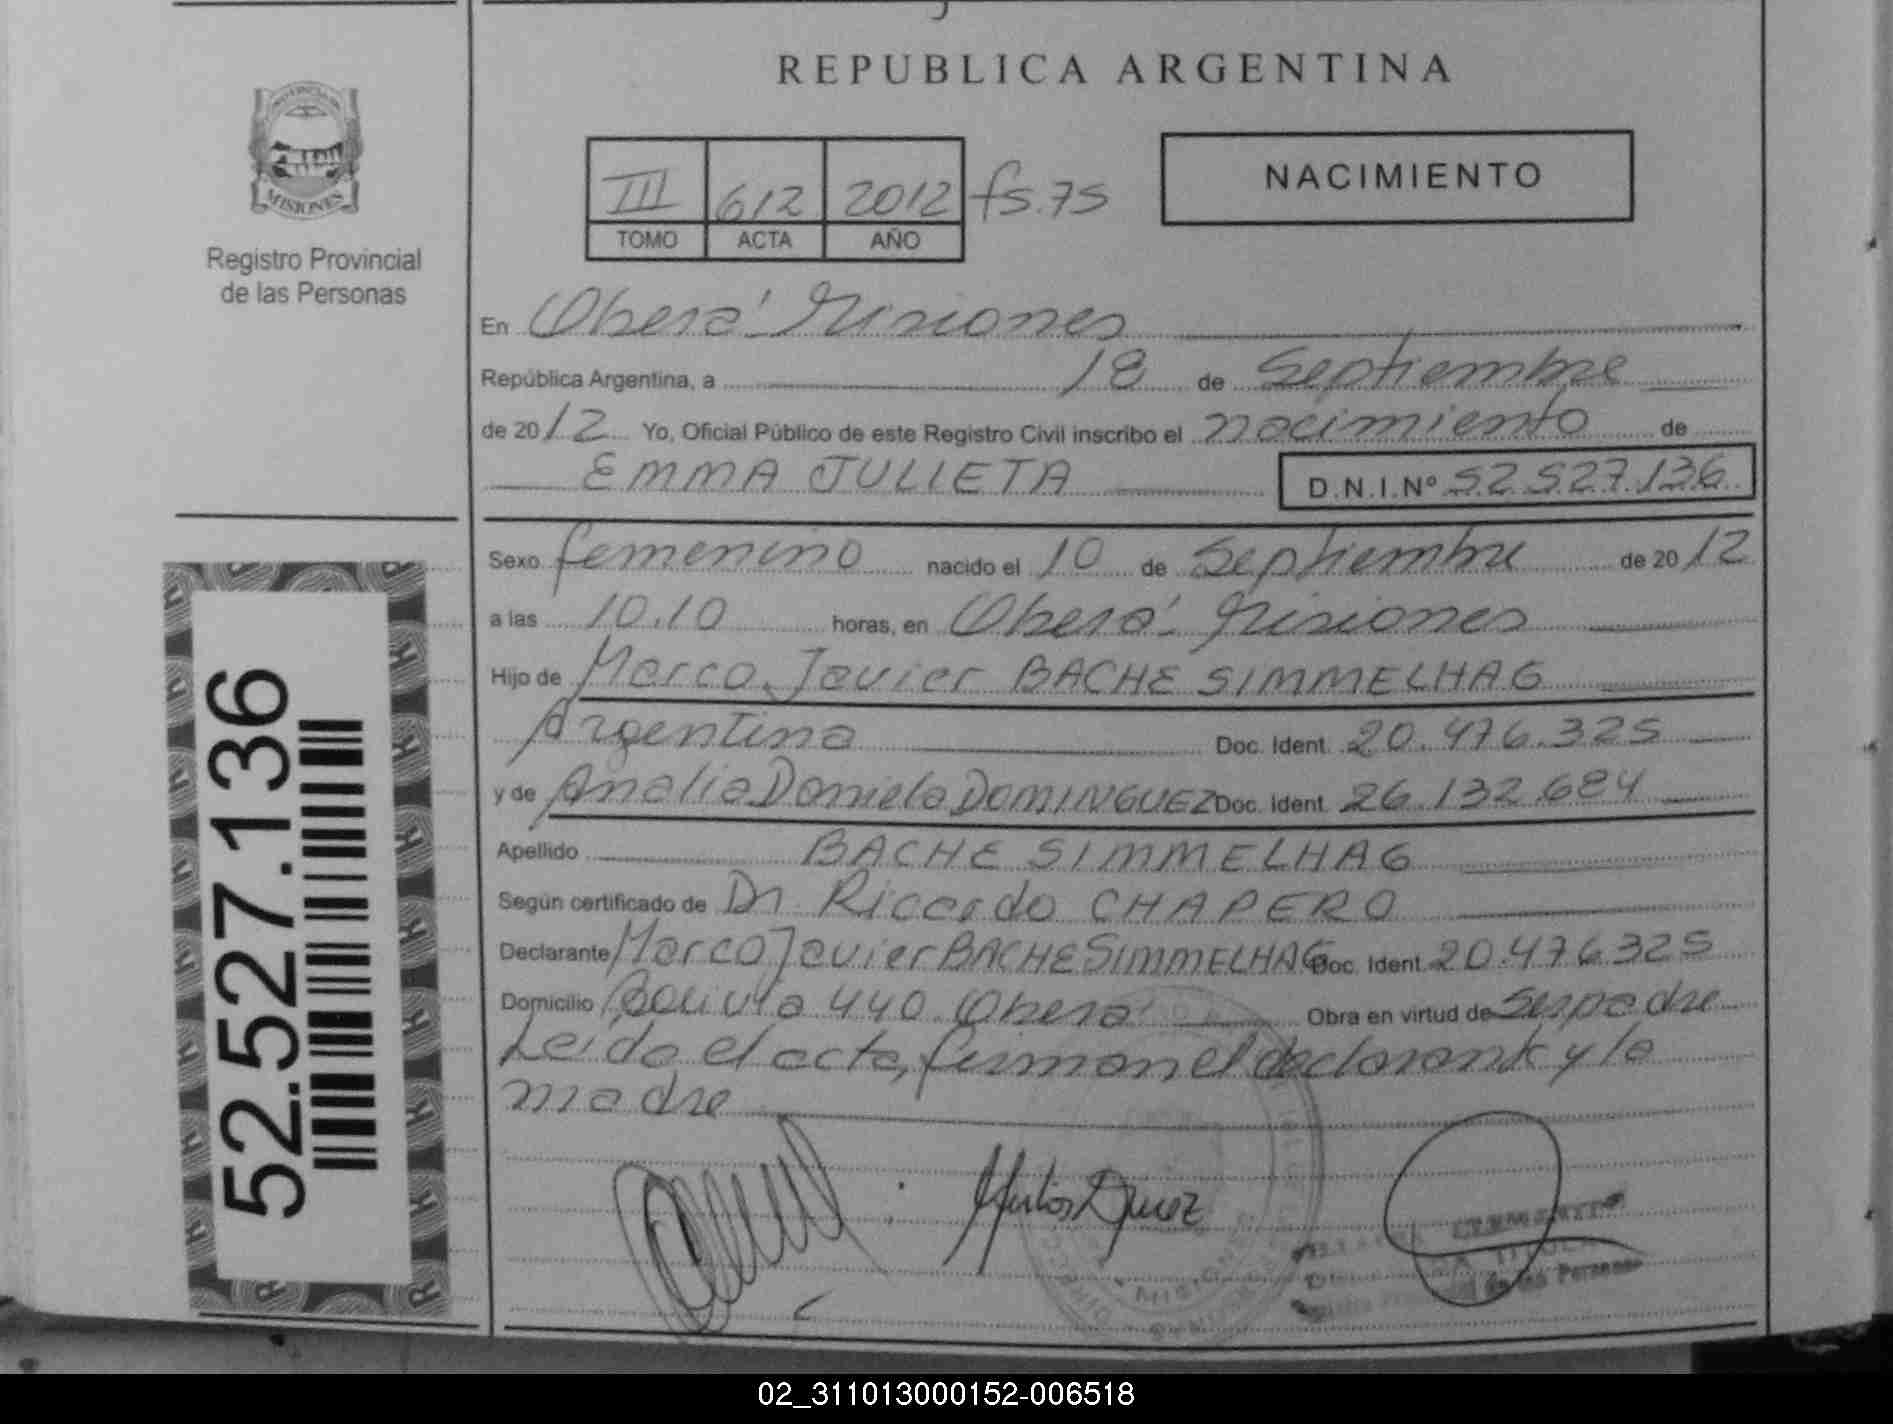 REPUBLICA ARGENTINA
PROVINCIA DE
MISIONES
Registro Provincial
de las Personas
III 612 2012 fs.75
TOMO ACTA AÑO
NACIMIENTO
En Oberá Misiones
República Argentina, a 18 de Septiembre
de 2012 Yo, Oficial Público de este Registro Civil inscribo el nacimiento de
EMMA JULIETA D.N.I.Nº 52.527.136
Sexo femenino nacido el 10 de Septiembre de 2012
a las 10.10 horas, en Oberá Misiones
Hijo de Marco Javier BACHE SIMMELHAG
Argentina Doc. Ident. 20.476.325
y de Analia Daniela DOMINGUEZ Doc. Ident. 26.132.684
Apellido BACHE SIMMELHAG
Según certificado de Dr. Ricardo CHAPERO
Declarante Marco Javier BACHE SIMMELHAG Doc. Ident. 20.476.325
Domicilio Bolivia 440 Oberá Obra en virtud de Ser padre
Leida el acta, firman el declarante y la
madre
52.527.136
02_311013000152-006518